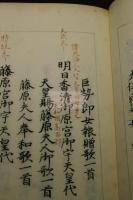 巨勢郎女報贈歌一首
明日香清御原宮御宇天皇代
天皇賜藤原夫人御歌一首
藤原夫人奉和歌一首
藤原宮御宇天皇代